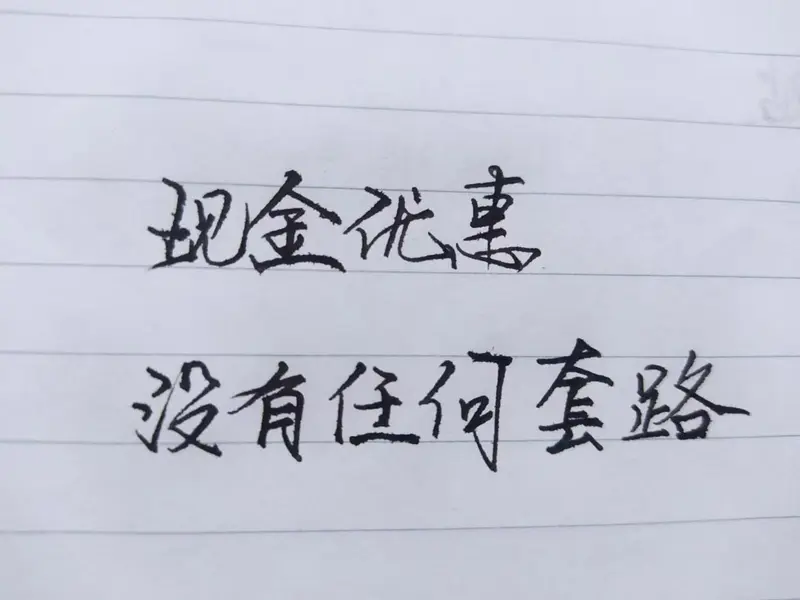 现金优惠
没有任何套路